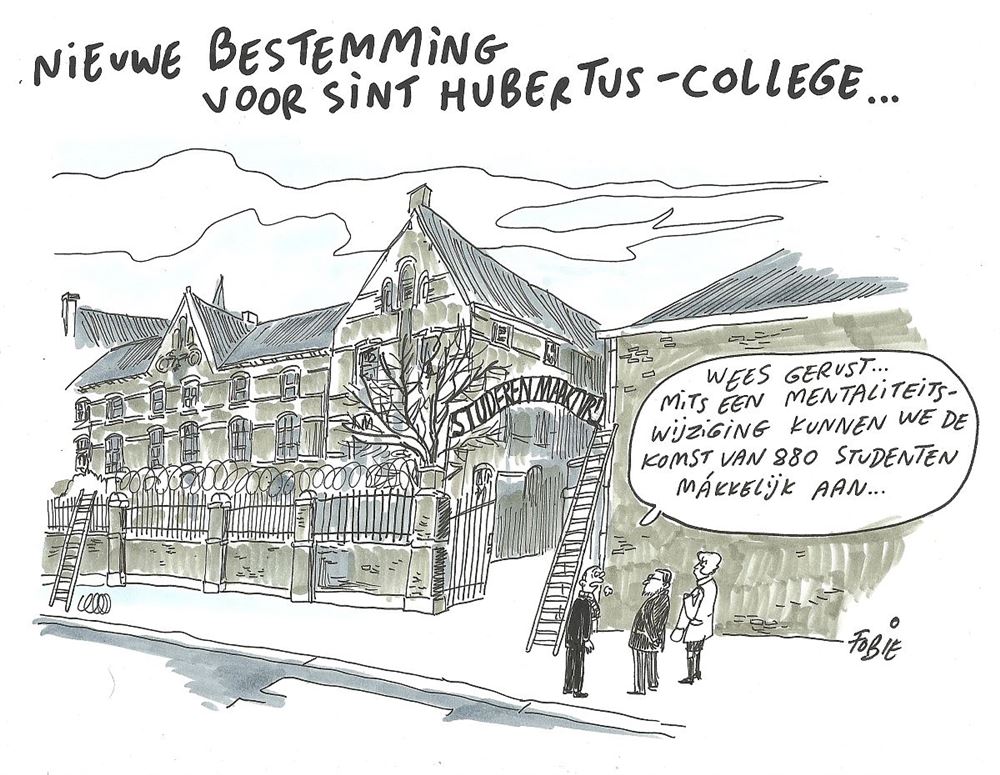 NIEUWE BESTEMMING
VOOR SINT HUBERTUS-COLLEGE...
STUDEREN MAAKT VRIJ
WEES GERUST...
MITS EEN MENTALITEITS-
WIJZIGING KUNNEN WE DE
KOMST VAN 880 STUDENTEN
MÁKKELIJK AAN...
FOBIE